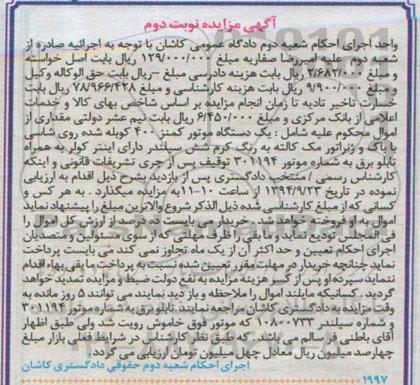 آگهی مزایده نوبت دوم
واحد اجرای احکام شعبه دوم دادگاه عمومی کاشان با توجه به اجرائیه صادره از
شعبه دوم علیه امیررضا صفاریه مبلغ ۱۲۹/۰۰۰/۰۰۰ ریال بابت اصل خواسته
و مبلغ ۲/۶۸۲/۰۰۰ ریال بابت هزینه دادرسی مبلغ – ریال بابت حق الوکاله وکیل
و مبلغ ۹/۹۰۰/۰۰۰ ریال بابت هزینه کارشناسی و مبلغ ۷۸/۹۶۶/۴۲۸ ریال بابت
خسارت تاخیر تادیه تا زمان انجام مزایده بر اساس شاخص بهای کالا و خدمات
اعلامی از بانک مرکزی و مبلغ ۶/۴۵۰/۰۰۰ ریال بابت نیم عشر دولتی مقداری از
اموال محکوم علیه شامل : یک دستگاه موتور کمنز ۴۰۰ کوپله شده روی شاسی
با باک و ژنراتور مک کالته به رنگ کرم شش سیلندر دارای اینتر کولر به همراه
تابلو برق به شماره موتور ۳۰۱۱۹۴ توقیف پس از جری تشریفات قانونی و اینکه
کارشناس رسمی / منتخب دادگستری پس از بازدید بشرح ذیل اقدام به ارزیابی
نموده در تاریخ ۱۳۹۴/۹/۲۳ از ساعت ۱۰-۱۱ به مزایده میگذارد . به هر کس و
کسانی که از مبلغ کارشناسی شده ذیل الذکر شروع والاترین مبلغ را پیشنهاد نماید
اموال به او فروخته خواهد شد . خریدار می بایست ده درصد از ارزش کل اموال را
فی المجلس تودیع نماید و ما بقی را ظرف مهلتی که از سوی مسئولین و متصدیان
اجرای احکام تعیین و حد اکثر آن از یک ماه تجاوز نمی کند می بایست پرداخت
نماید چنانچه خریدار در مهلت مقرر تعیین شده نسبت به پرداخت ما بقی بهاء اقدام
ننماید سپرده او پس از کسر هزینه مزایده به نفع دولت ضبط و مزایده تمدید خواهد
گردید . کسانیکه مایلند اموال را ملاحظه و باز دید نمایند می توانند ۵ روز مانده به
وقت مزایده به دادگستری کاشان مراجعه نمایند. تابلو برق به شماره موتور ۳۰۱۱۹۴
و شماره سیلندر ۱۰۸۰۰۷۳۳ که موتور فوق خاموش رویت شد ولی طبق اظهار
آقای باطنی فر سالم می باشد . که طبق نظر کارشناس در شرایط فعلی بازار مبلغ
چهارصد میلیون ریال معادل چهل میلیون تومان ارزیابی می گردد.
اجرای احکام شعبه دوم حقوقی دادگستری کاشان
۱۹۹۷